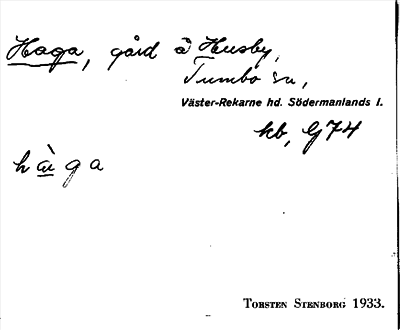 Haga, gård å Husby,
Tumbo sn,
Väster-Rekarne hd. Södermanlands l.
kb, G74
hàga
TORSTEN STENBORG 1933.